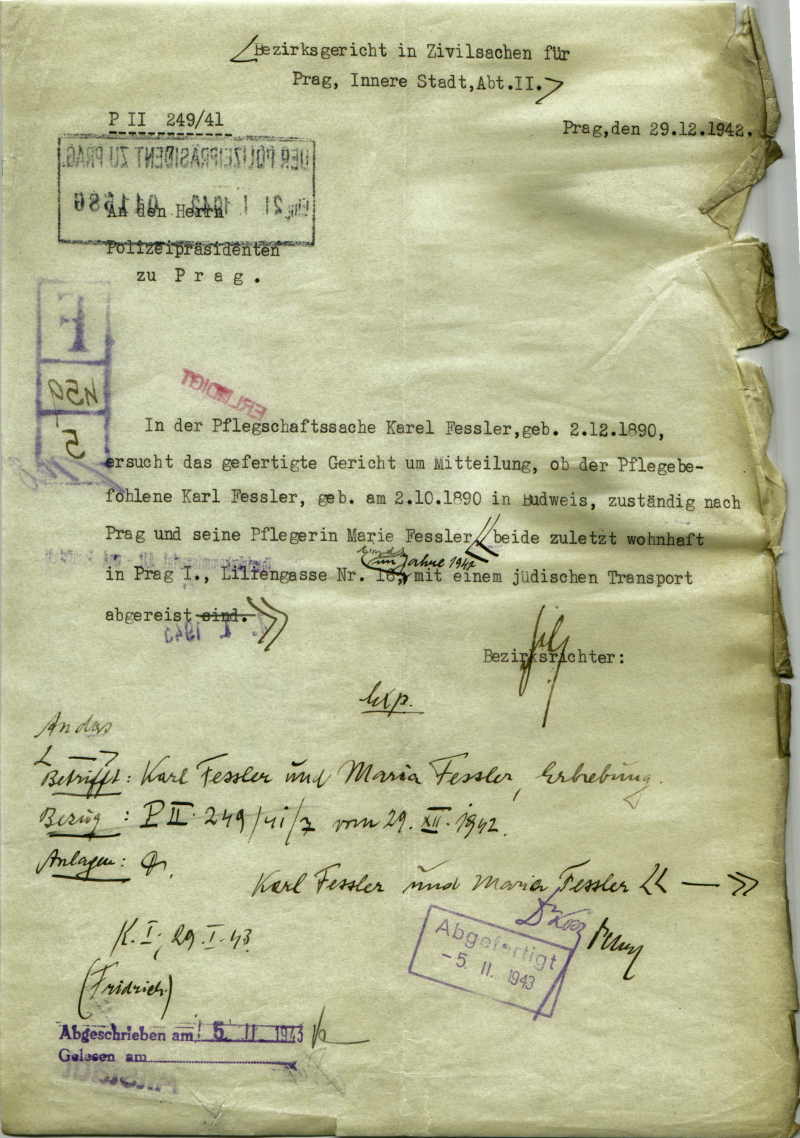 Bezirksgericht in Zivilsachen für
Prag, Innere Stadt,Abt.II.
P II 249/41
Prag,den 29.12.1942.
DER POLIZEIPRÄSIDENT ZU PRAG.
21 I 1942 041686
An den Herrn
Polizeipräsidenten
zu P r a g .
F
459
5
ERLEDIGT
In der Pflegschaftssache Karel Fessler,geb. 2.12.1890,
ersucht das gefertigte Gericht um Mitteilung, ob der Pflegebe-
fohlene Karl Fessler, geb. am 2.10.1890 in Budweis, zuständig nach
Prag und seine Pflegerin Marie Fessler beide zuletzt wohnhaft
im Jahre 1942
in Prag I., Liliengasse Nr. 18, mit einem jüdischen Transport
abgereist sind.
1943
Bezirksrichter:
Exp.
An das
Betrifft: Karl Fessler und Maria Fessler, Erhebung.
Bezug: P II 249/41/7 vom 29. XII. 1942.
Anlagen:
Karl Fessler und Maria Fessler
K. I, 29. I. 43.
Abgefertigt
-5. II. 1943
(Fridrich)
Abgeschrieben am 5. II. 1943
Gelesen am